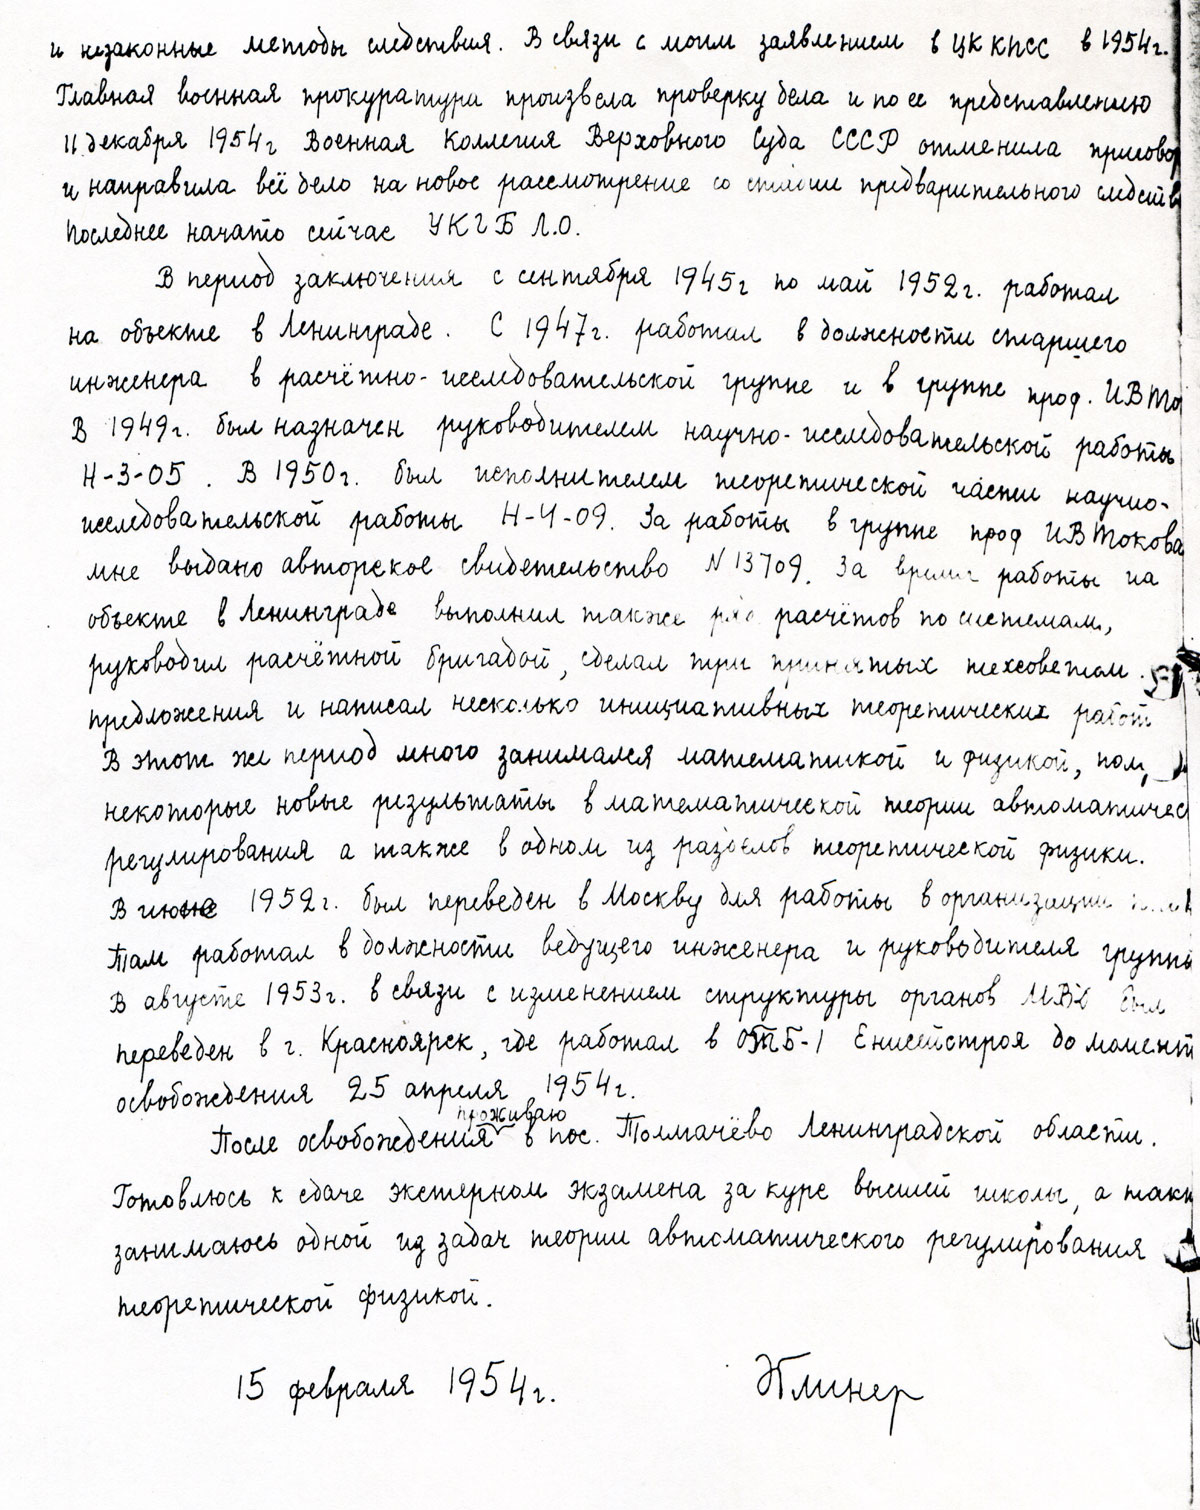 и незаконные методы следствия. В связи с моим заявлением в ЦК КПСС в 1954г.
Главная военная прокуратура произвела проверку дела и по ее представлению
11 декабря 1954г Военная Коллегия Верховного Суда СССР отменила приговор
и направила всё дело на новое рассмотрение со стадии предварительного следств
Последнее начато сейчас УКГБ Л.О.
В период заключения с сентября 1945г по май 1952г. работал
на объекте в Ленинграде. С 1947г. работал в должности старшего
инженера в расчётно-исследовательской группе и в группе проф. ИВ То
В 1949г. был назначен руководителем научно-исследовательской работы
Н-3-05. В 1950г. был исполнителем теоретической части научно-
исследовательской работы Н-4-09. За работы в группе проф ИВ Токова
мне выдано авторское свидетельство N 13709. За время работы на
объекте в Ленинграде выполнил также ряд расчётов по системам,
руководил расчётной бригадой, сделал три принятых техсоветом
предложения и написал несколько инициативных теоретических работ
В этот же период много занимался математикой и физикой, пол
некоторые новые результаты в математической теории автоматичес
регулирования а также в одном из разделов теоретической физики.
В июне 1952г. был переведен в Москву для работы в организации
Там работал в должности ведущего инженера и руководителя группы
В августе 1953г. в связи с изменением структуры органов МВД был
переведен в г. Красноярск, где работал в ОТБ-1 Енисейстроя до момент
освобождения 25 апреля 1954г.
После освобождения проживаю в пос. Толмачёво Ленинградской области.
Готовлюсь к сдаче экстерном экзамена за курс высшей школы, а такж
занимаюсь одной из задач теории автоматического регулирования
теоретической физикой.
15 февраля 1954г. Клинер